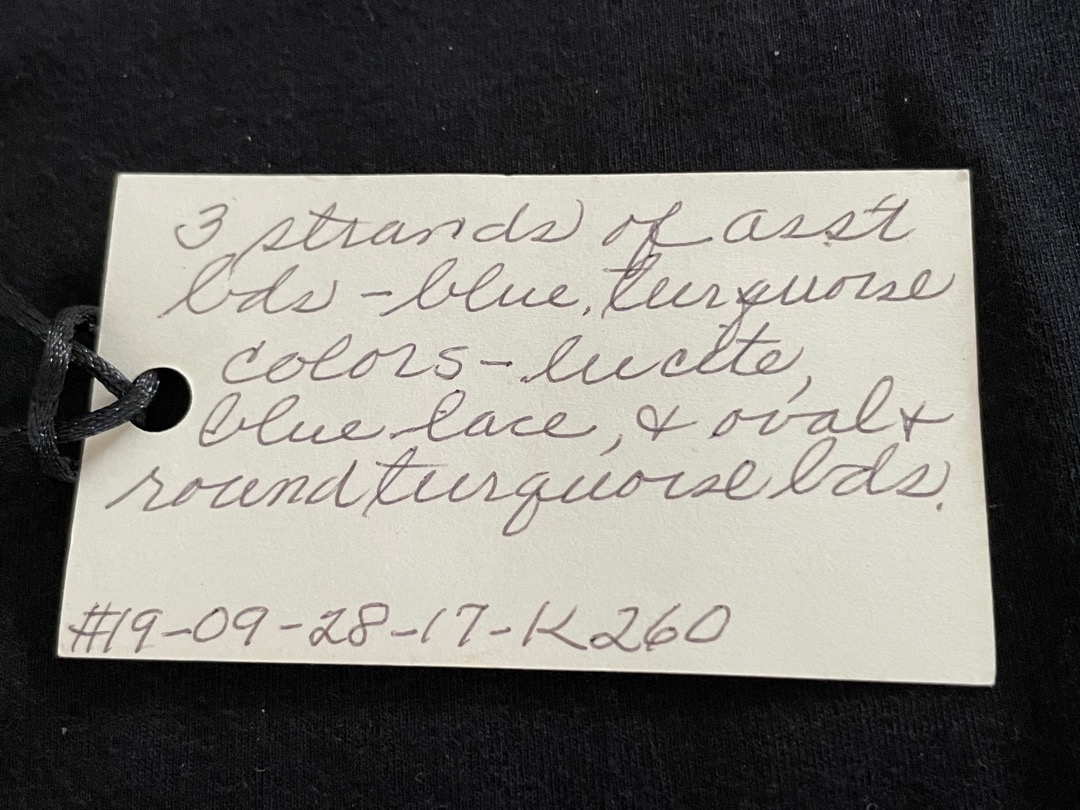 3 strands of ass't
bds - blue, turquoise
colors - lucite,
blue lace, & oval &
round turquoise bds.
#19-09-28-17-K260